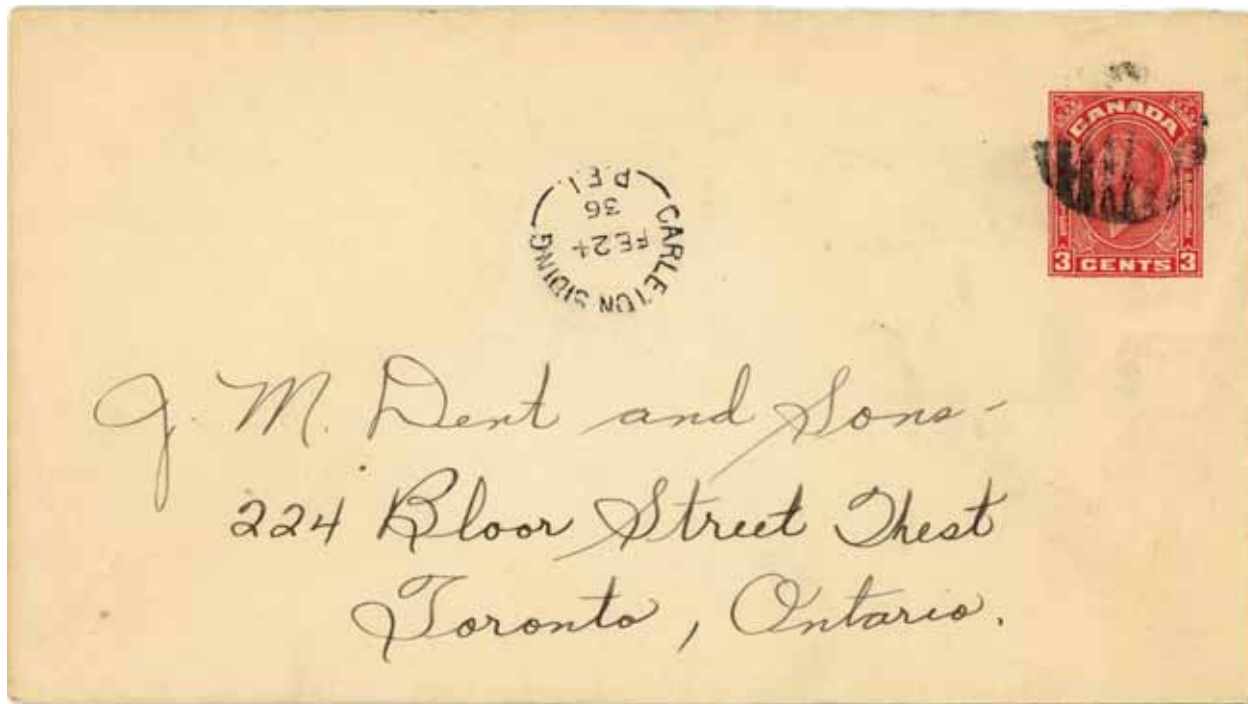 CANADA
3 CENTS 3
CARLETON SIDING
FE 24
36
P.E.I.
J. M. Dent and Sons-
224 Bloor Street West
Toronto, Ontario.